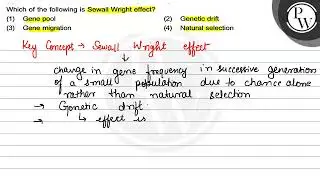 Which of the following is Sewall Wright effect?
(1) Gene pool (2) Genetic drift
(3) Gene migration (4) Natural selection
PW
Key Concept → Sewall Wright effect
↓
change in gene frequency in successive generation
of a small population due to chance alone
rather than natural selection
→ Genetic drift.
→ ↳ effect is